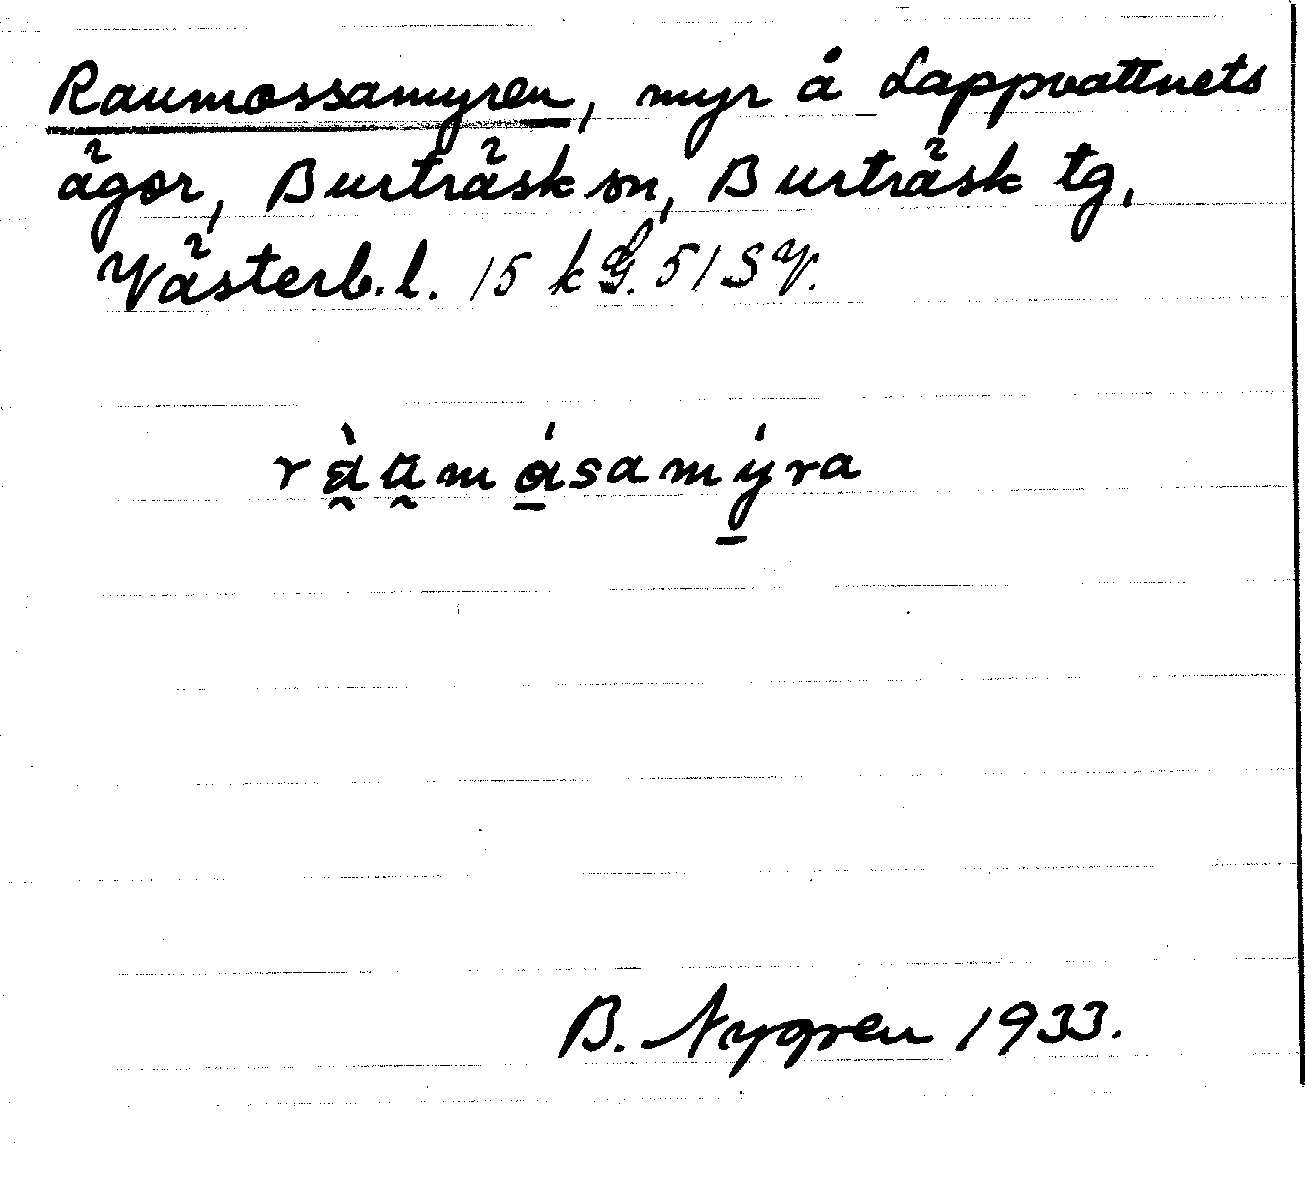 Raumossamyren, myr å Lappvattnets
ägor, Burträsk sn, Burträsk tg,
Västerb. l. 15 k G. 51 SV.
ràu̯mósamýra
B. Nygren 1933.